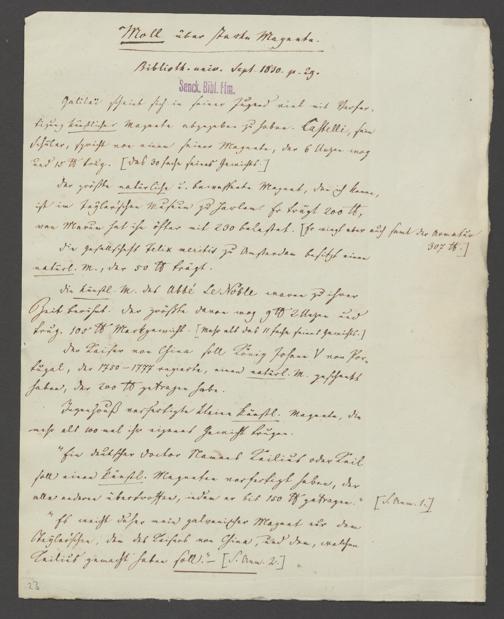 Moll über starke Magnete.
Biblioth. univ. Sept. 1830. p. 29.
Senck. Bibl. Ffm.
Galilei scheint sich in seiner Jugend viel mit Verfer-
tigung künstlicher Magnete abgegeben zu haben. Castelli, sein
Schüler, spricht von einem seiner Magnete, der 6 Unzen wog
und 15 ℔ trug. [das 30 fache seines Gewichts.]
Der größte natürliche u. bewaffnete Magnet, den ich kenne,
ist im Teylerschen Museum zu Harlem. Er trägt 200 ℔,
van Marum hat ihn öfter mit 230 belastet. [Er wiegt aber auch samt der Armatur
307 ℔.]
Die Gesellschaft Felix meritis zu Amsterdam besitzt einen
natürl. M., der 50 ℔ trägt.
Die künstl. M. des Abbé Le Noble waren zu ihrer
Zeit berühmt. Der größte davon wog 9 ℔ 2 Unzen und
trug 105 ℔ Markgewicht. [Mehr als das 11 fache seines Gewichts.]
Der Kaiser von China soll König Johann V von Por-
tugal, der 1750–1777 regierte, einen natürl. M. geschenkt
haben, der 200 ℔ getragen habe.
Ingenhouß verfertigte kleine künstl. Magnete, die
mehr als 100 mal ihr eigenes Gewicht trugen.
"Ein deutscher Doctor Namens Keilius oder Keil
soll einen künstl. Magneten verfertigt haben, der
alle andere übertroffen, indem er bis 150 ℔ getragen." [S. Anm. 1.]
"Es weicht daher mein galvanischer Magnet nur dem
Teylerschen, dem des Kaisers von China, und dem, welchen
Keilius gemacht haben soll." – [S. Anm. 2.]
23